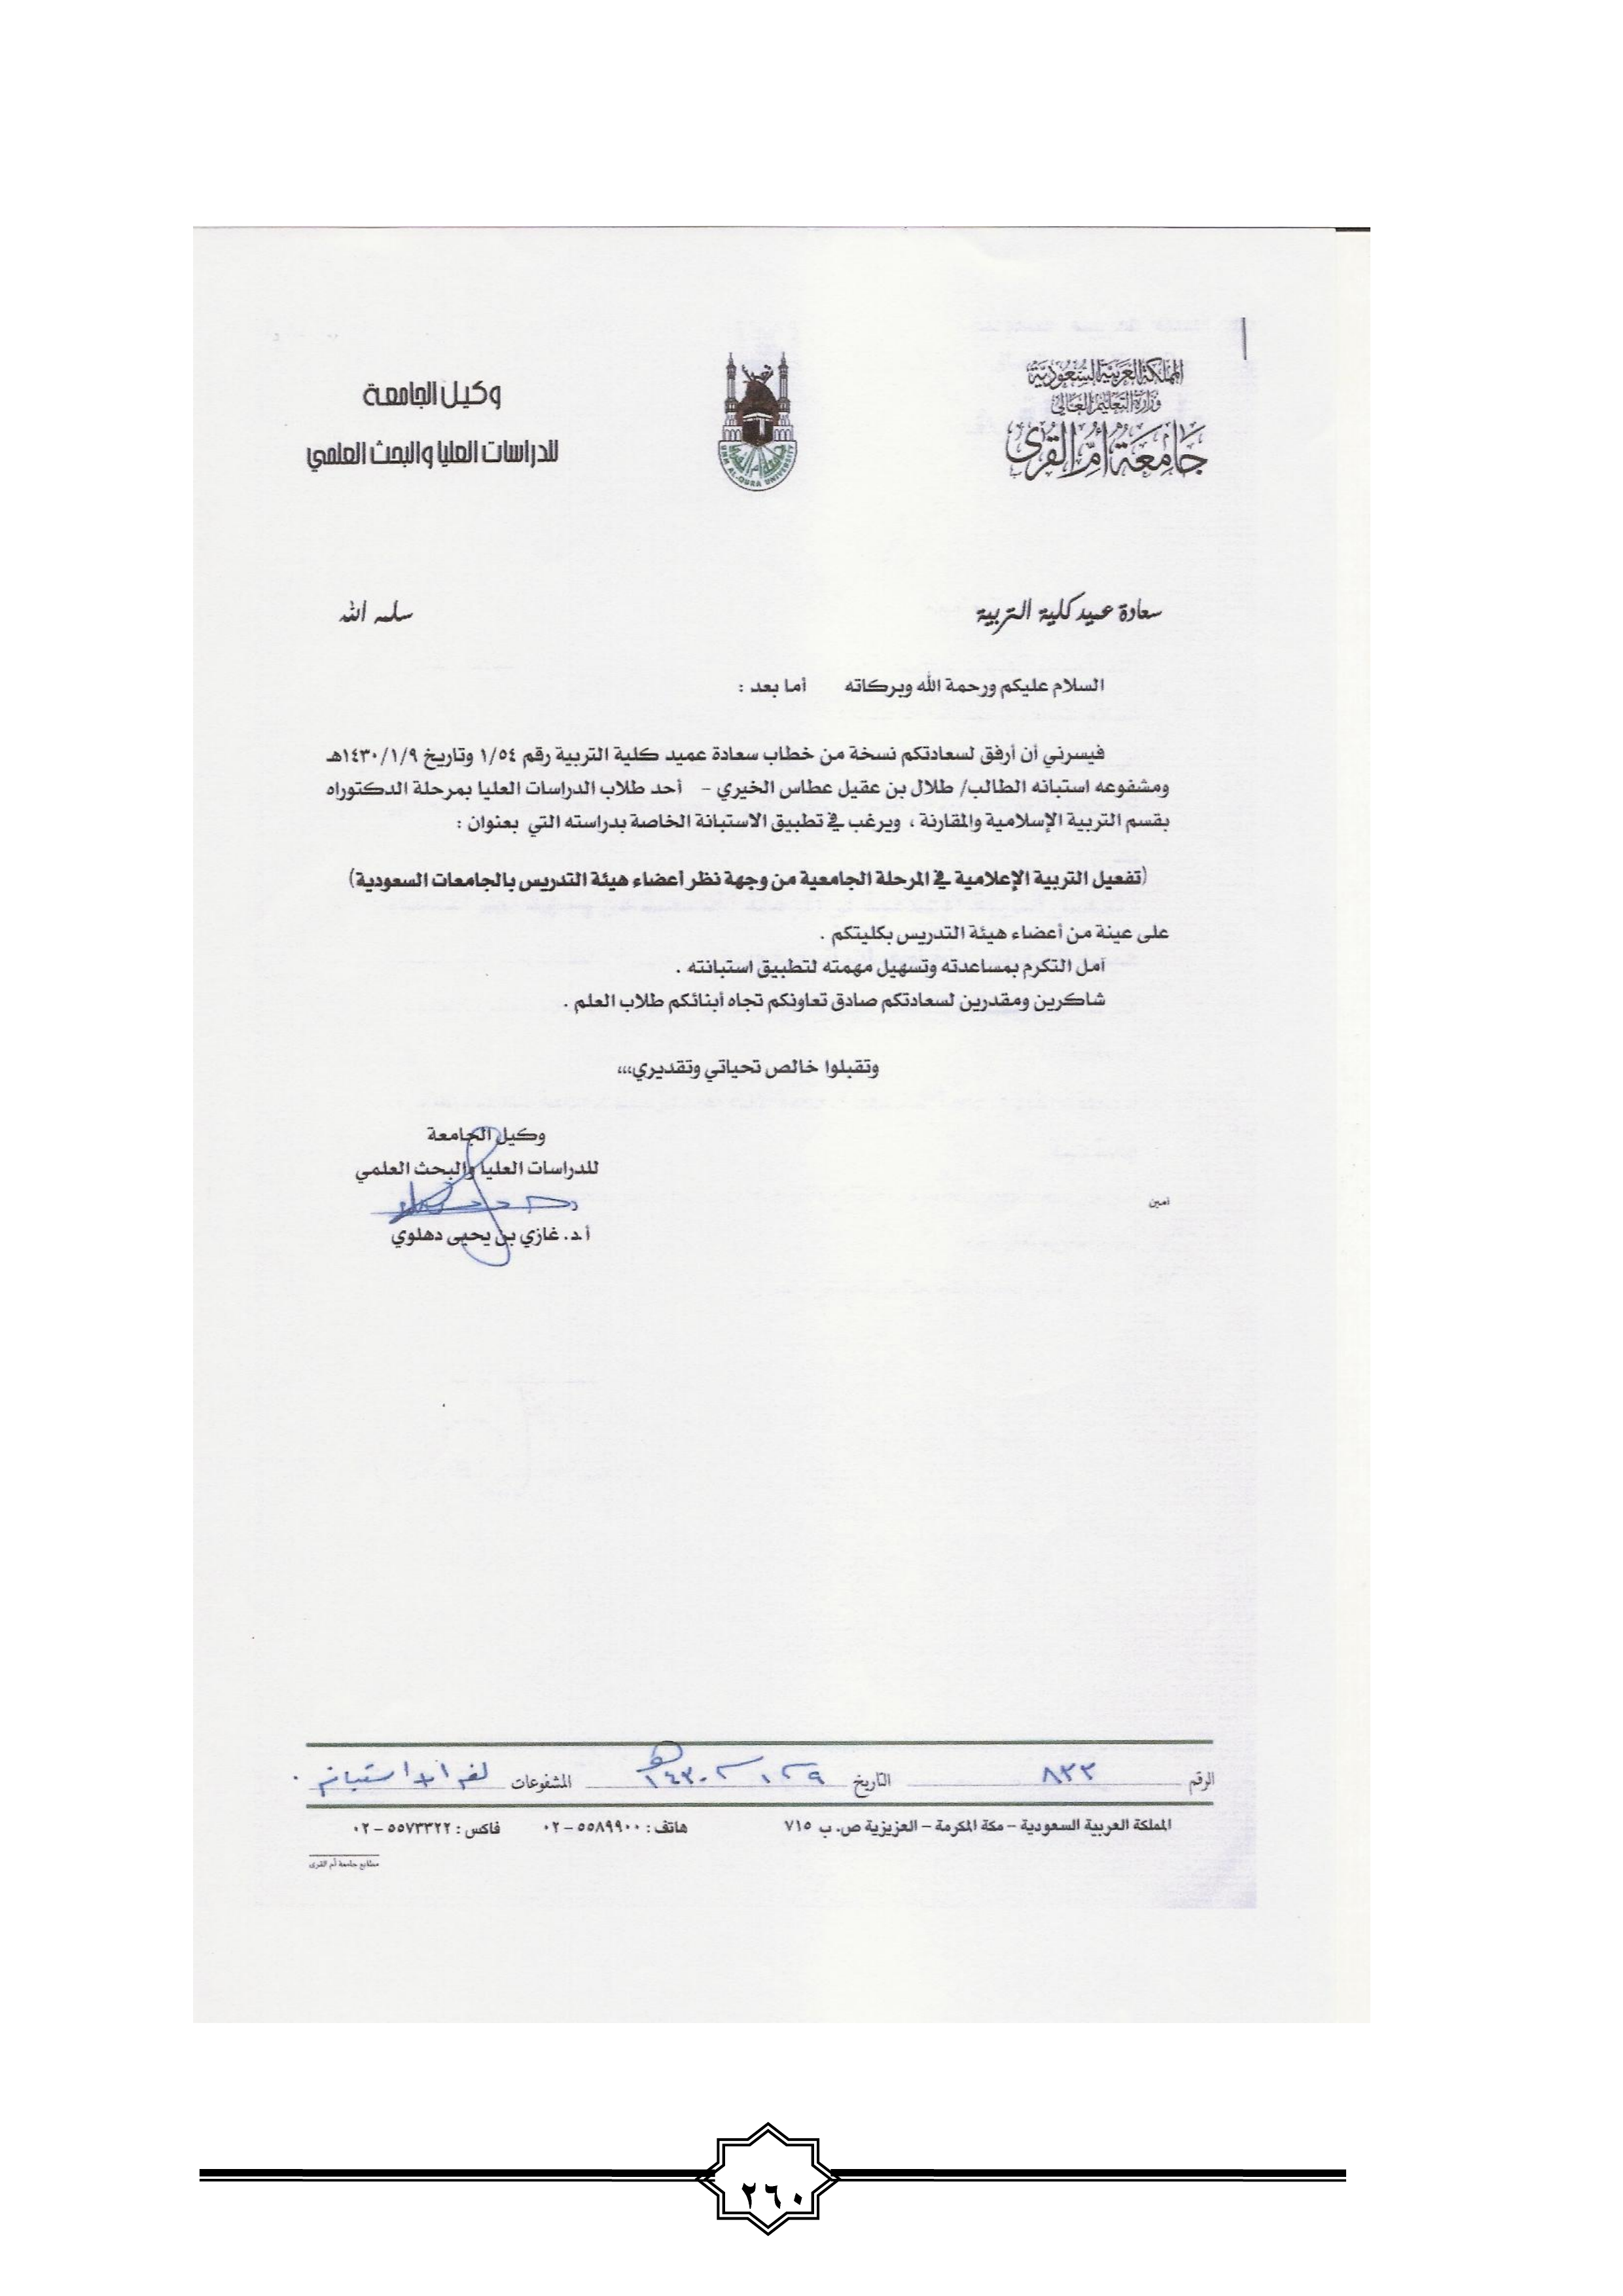 المملكة العربية السعودية
وزارة التعليم العالي
جامعة أم القرى
UMM AL-QURA UNIVERSITY
وكيل الجامعة
للدراسات العليا والبحث العلمي
سعادة عميد كلية التربية سلمه الله
السلام عليكم ورحمة الله وبركاته أما بعد :
فيسرني أن أرفق لسعادتكم نسخة من خطاب سعادة عميد كلية التربية رقم ١/٥٤ وتاريخ ١٤٣٠/١/٩هـ
ومشفوعه استبانه الطالب/ طلال بن عقيل عطاس الخيري - أحد طلاب الدراسات العليا بمرحلة الدكتوراه
بقسم التربية الإسلامية والمقارنة ، ويرغب في تطبيق الاستبانة الخاصة بدراسته التي بعنوان :
(تفعيل التربية الإعلامية في المرحلة الجامعية من وجهة نظر أعضاء هيئة التدريس بالجامعات السعودية)
على عينة من أعضاء هيئة التدريس بكليتكم .
آمل التكرم بمساعدته وتسهيل مهمته لتطبيق استبانته .
شاكرين ومقدرين لسعادتكم صادق تعاونكم تجاه أبنائكم طلاب العلم .
وتقبلوا خالص تحياتي وتقديري،،،
وكيل الجامعة
للدراسات العليا والبحث العلمي
أ.د. غازي بن يحيى دهلوي
امين
الرقم ٨٣٣ التاريخ ١٤٣٠هـ المشفوعات استبانه
المملكة العربية السعودية – مكة المكرمة – العزيزية ص. ب ٧١٥ هاتف : ٥٥٨٩٩٠٠ – ٠٢ فاكس : ٥٥٧٣٣٢٢ – ٠٢
مطابع جامعة أم القرى
٢٦٠